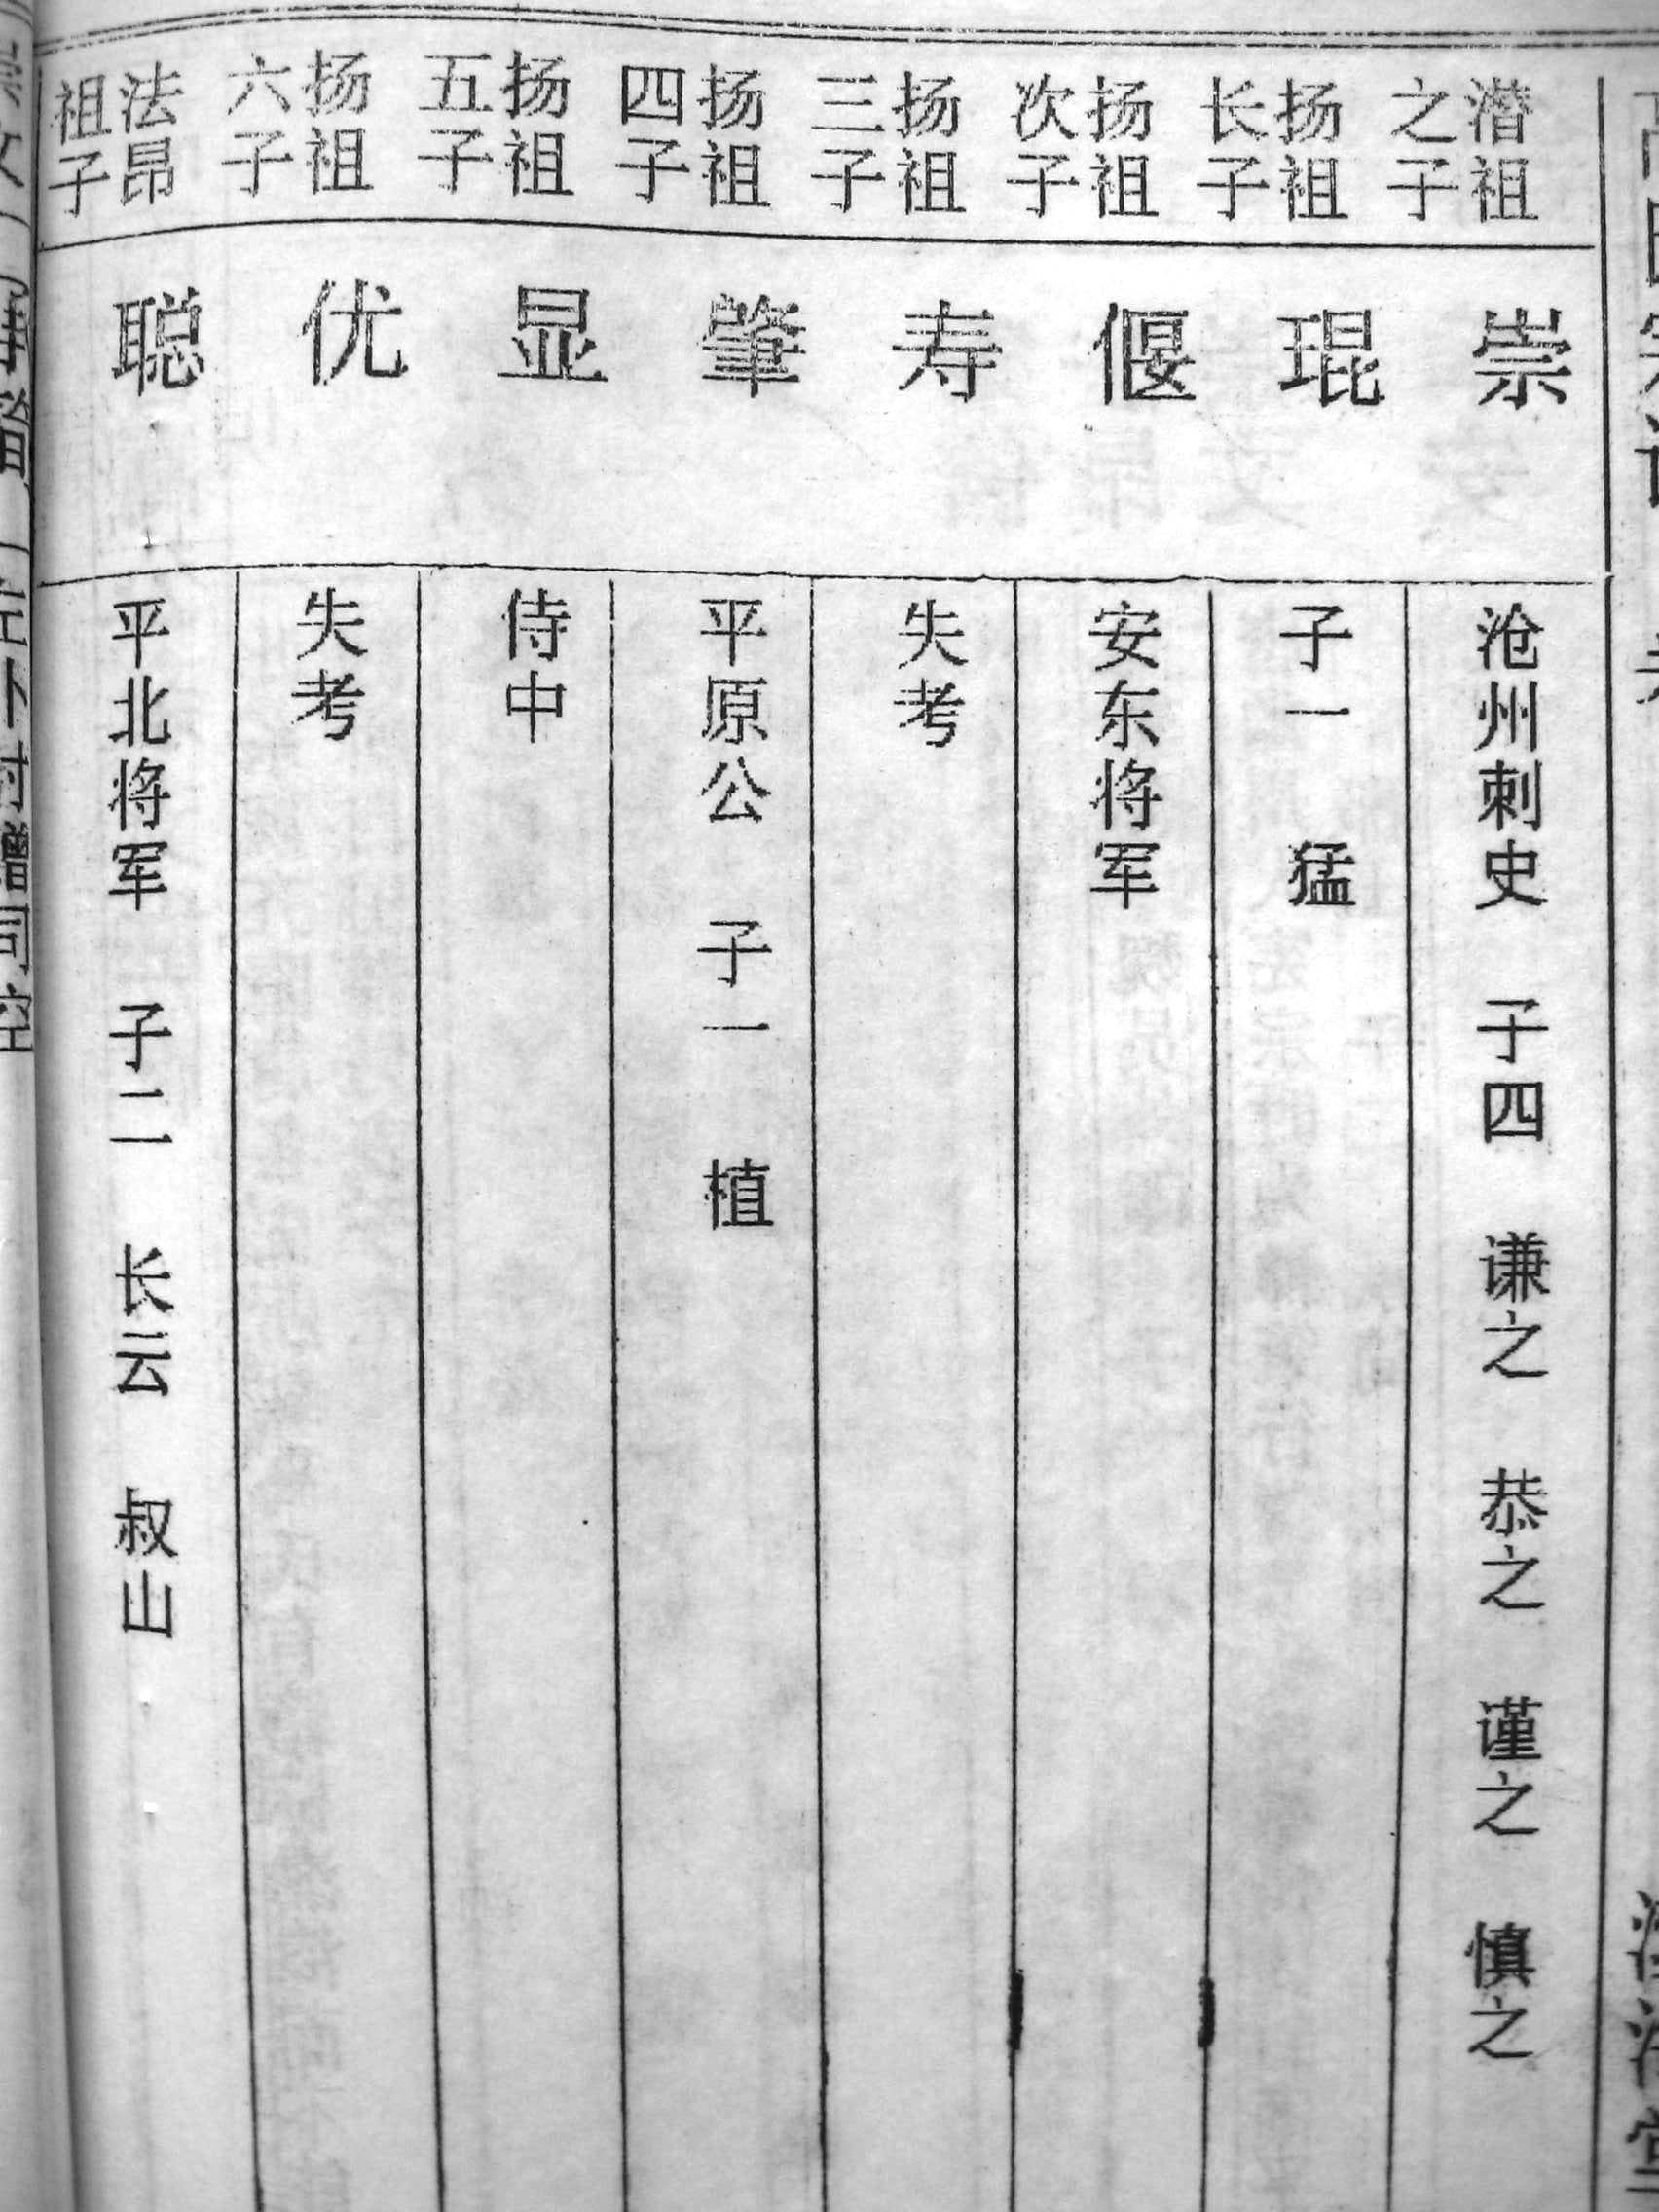 潜祖之子
崇
沧州刺史 子四 谦之 恭之 谨之 慎之
扬祖长子
琨
子一 猛
扬祖次子
偃
安东将军
扬祖三子
寿
失考
扬祖四子
肇
平原公 子一 植
扬祖五子
显
侍中
扬祖六子
优
失考
法昂祖子
聪
平北将军 子二 长云 叔山